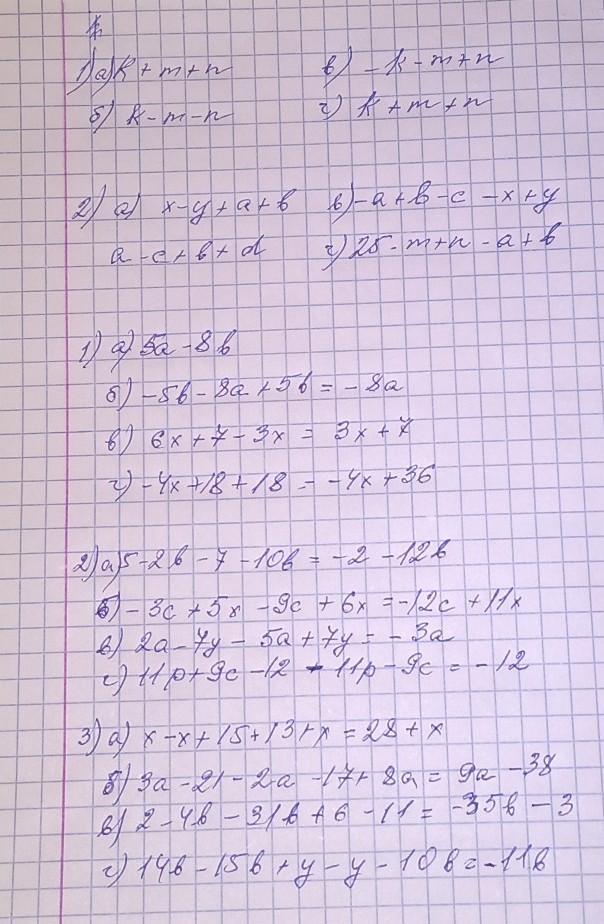 1) а) k + m + n   в) - k - m + n
б) k - m - n   г) k + m + n
2) а) x - y + a + b   в) - a + b - c - x + y
a - c + b + d   г) 25 - m + n - a + b
1) а) 5a - 8b
б) -5b - 8a + 5b = -8a
в) 6x + 7 - 3x = 3x + 7
г) -4x + 18 + 18 = -4x + 36
2) а) 5 - 2b - 7 - 10b = -2 - 12b
б) - 3c + 5x - 9c + 6x = -12c + 11x
в) 2a - 7y - 5a + 7y = - 3a
г) 11p + 9c - 12 - 11p - 9c = -12
3) а) x - x + 15 + 13 + x = 28 + x
б) 3a - 21 - 2a - 17 + 8a = 9a - 38
в) 2 - 4b - 31b + 6 - 11 = -35b - 3
г) 14b - 15b + y - y - 10b = -11b